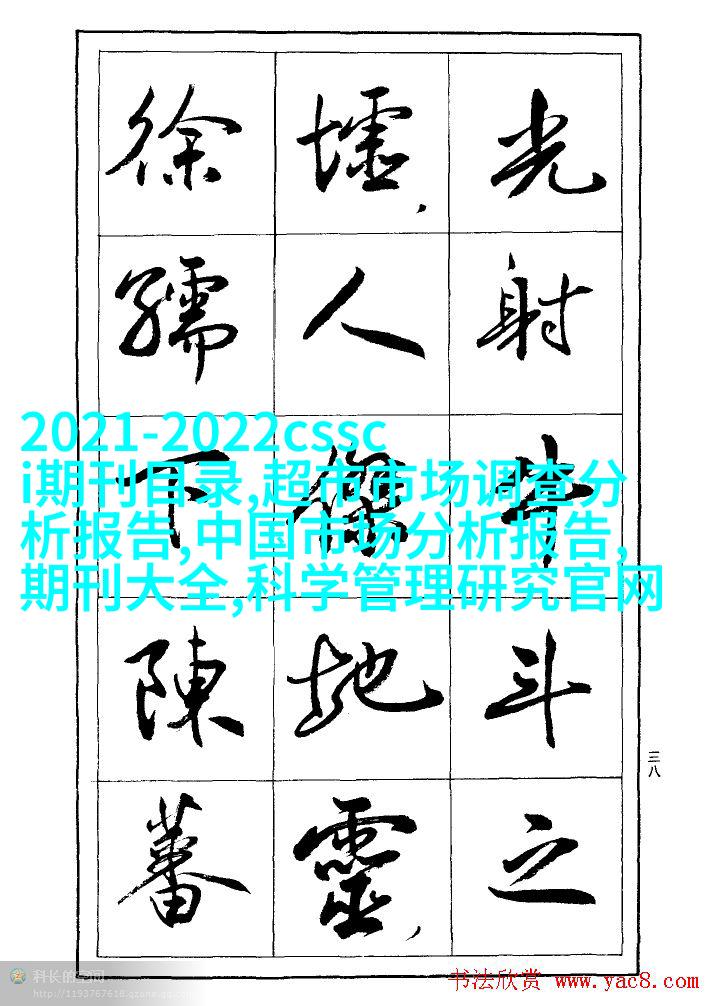 光射牛斗之
墟,人傑地靈,
徐孺下陳蕃
2021-2022cssc
i期刊目录,超市市场调查分
析报告,中国市场分析报告,
期刊大全,科学管理研究官网
三八
科长的空间
http://1193767618.qzone.qq.com
书法欣赏 www.yac8.com